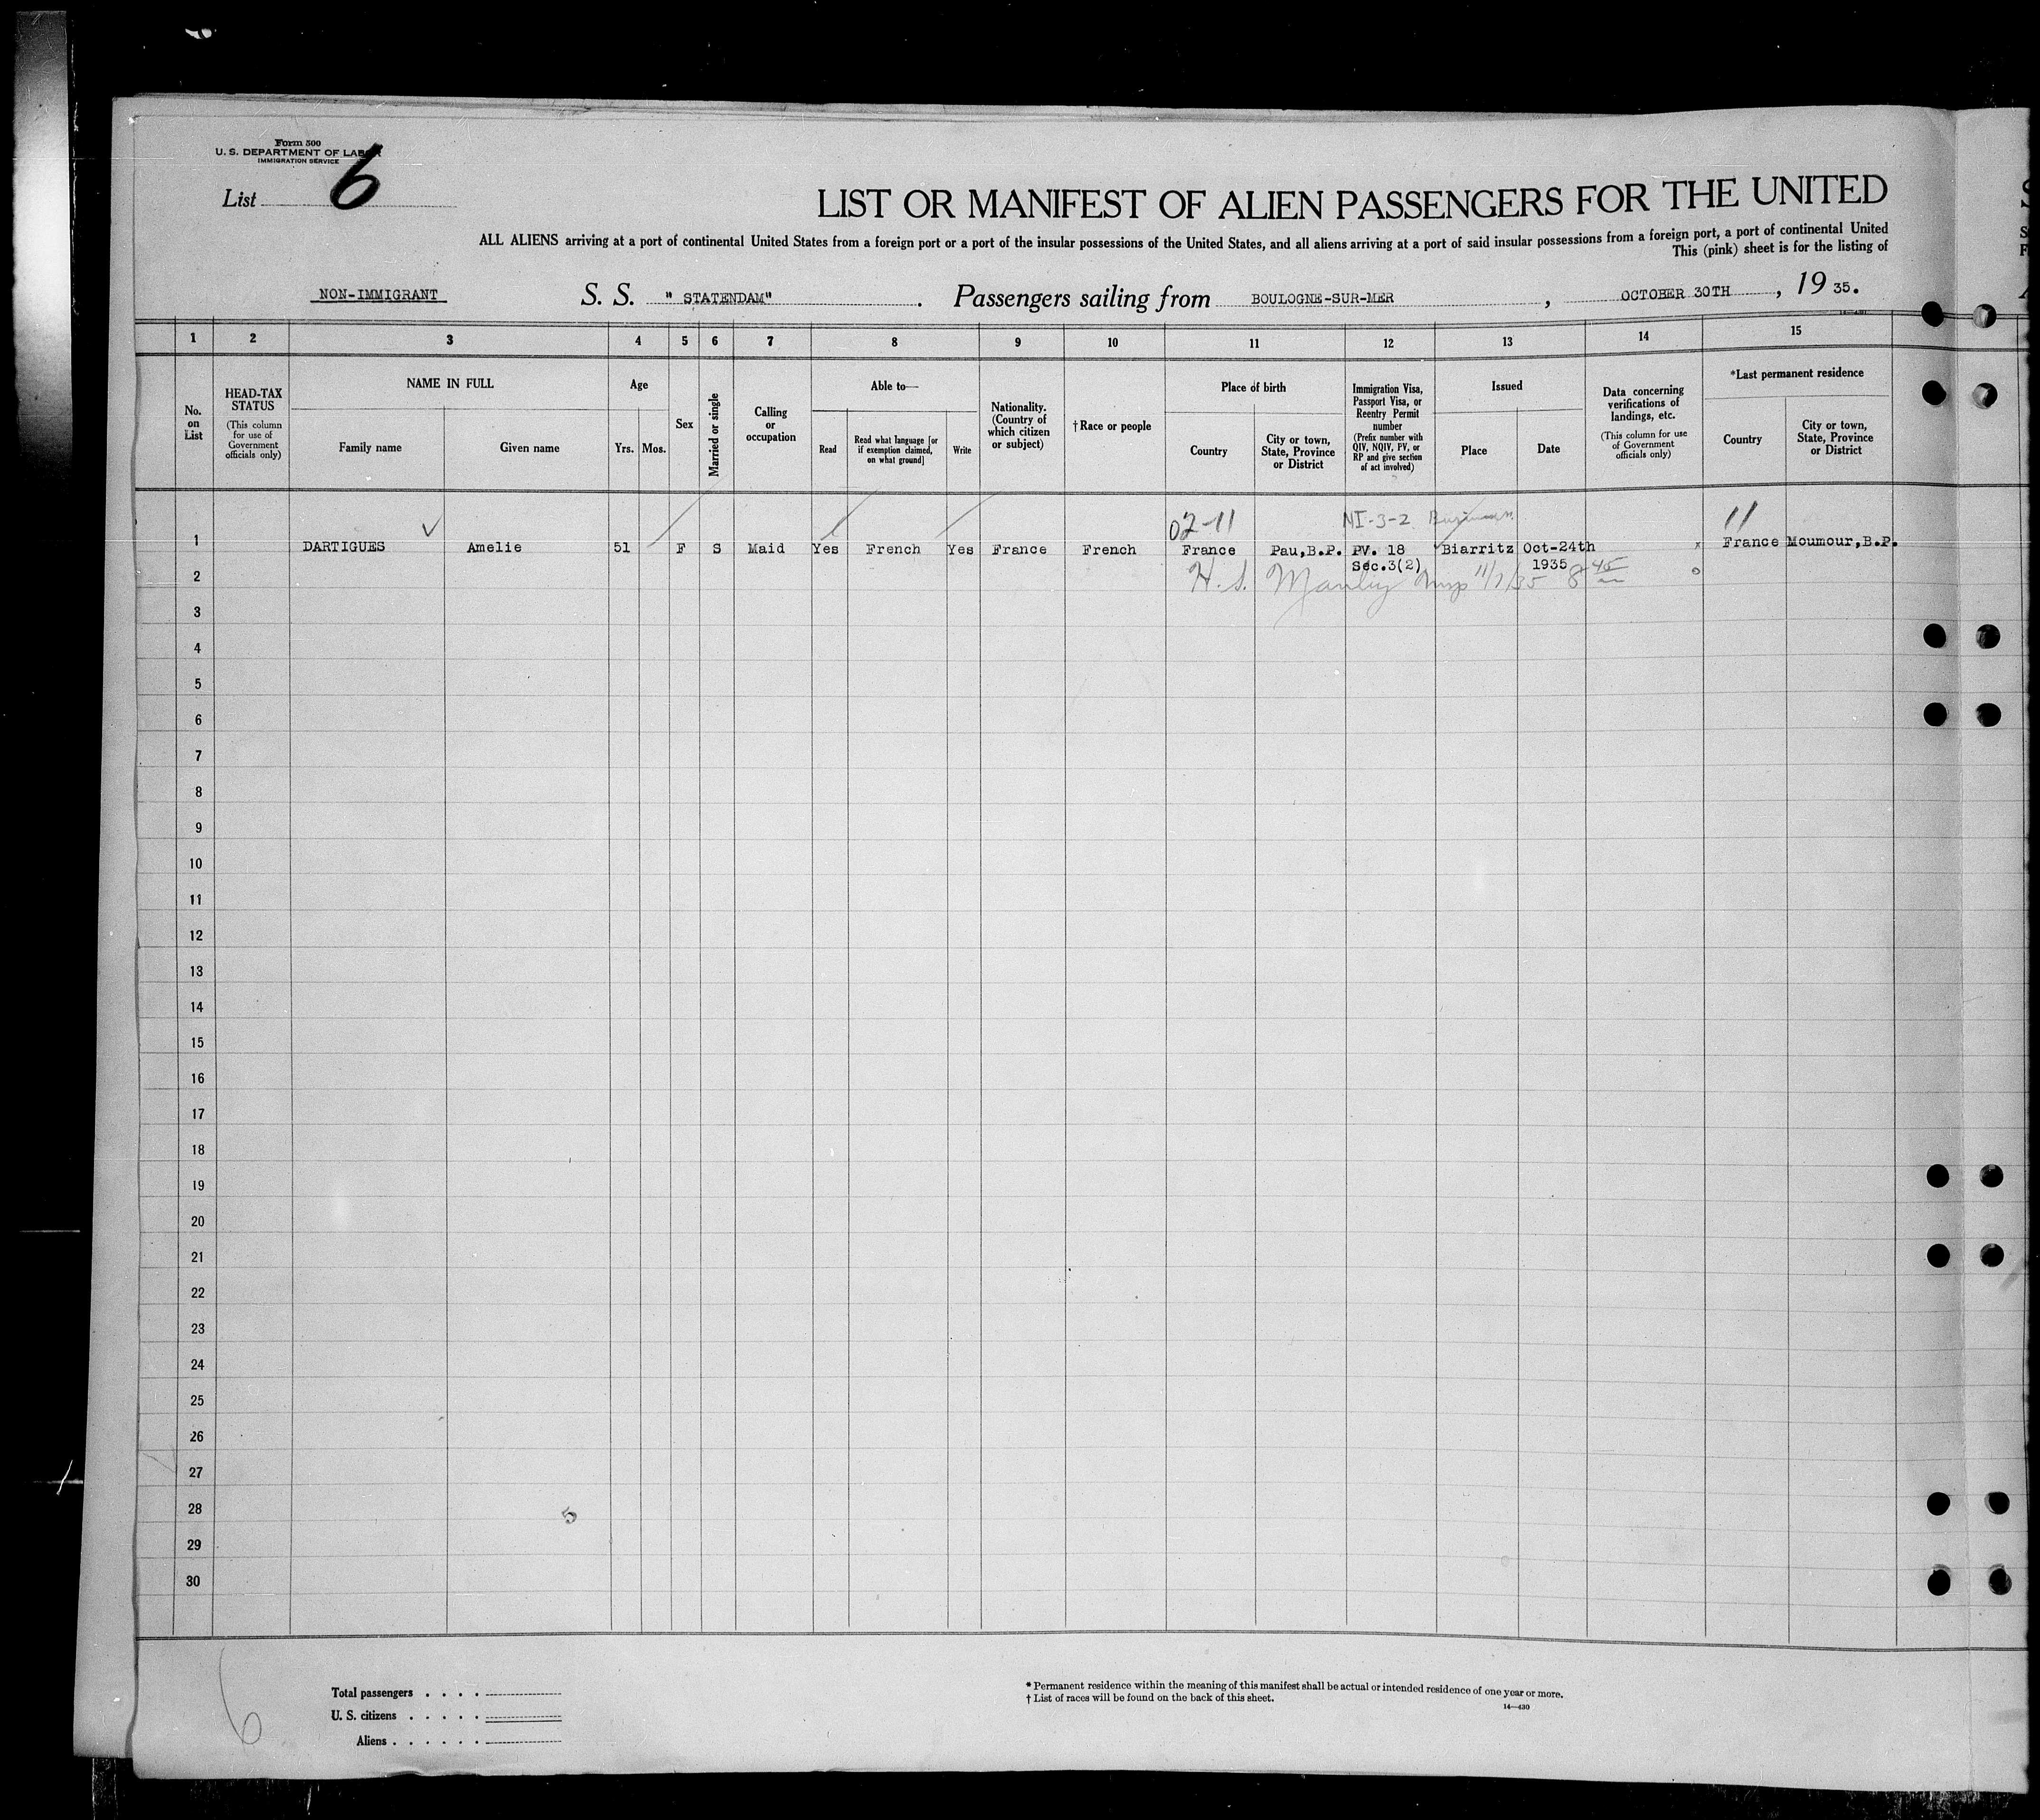 Form 500
U. S. DEPARTMENT OF LABOR
IMMIGRATION SERVICE
List 6
LIST OR MANIFEST OF ALIEN PASSENGERS FOR THE UNITED
ALL ALIENS arriving at a port of continental United States from a foreign port or a port of the insular possessions of the United States, and all aliens arriving at a port of said insular possessions from a foreign port, a port of continental United
This (pink) sheet is for the listing of
NON-IMMIGRANT S. S. " STATENDAM" . Passengers sailing from BOULOGNE-SUR-MER , OCTOBER 30TH , 19 35.
1 2 3 4 5 6 7 8 9 10 11 12 13 14 15
No. on List
HEAD-TAX STATUS
(This column for use of Government officials only)
NAME IN FULL
Family name
Given name
Age
Yrs.
Mos.
Sex
Married or single
Calling or occupation
Able to—
Read
Read what language [or if exemption claimed, on what ground]
Write
Nationality. (Country of which citizen or subject)
†Race or people
Place of birth
Country
City or town, State, Province or District
Immigration Visa, Passport Visa, or Reentry Permit number
(Prefix number with QIV, NQIV, PV, or RP and give section of act involved)
Issued
Place
Date
Data concerning verifications of landings, etc.
(This column for use of Government officials only)
*Last permanent residence
Country
City or town, State, Province or District
02-11 NI-3-2 11
1 DARTIGUES Amelie 51 F S Maid Yes French Yes France French France Pau,B.P. PV. 18 Biarritz Oct-24th x France Moumour,B.P.
Sec.3(2) 1935
2 H. S. Manley 11/7/35 8 45
3
4
5
6
7
8
9
10
11
12
13
14
15
16
17
18
19
20
21
22
23
24
25
26
27
28
5
29
30
6
Total passengers . . . .
U. S. citizens . . . . .
Aliens . . . . . .
* Permanent residence within the meaning of this manifest shall be actual or intended residence of one year or more.
† List of races will be found on the back of this sheet.
14—430